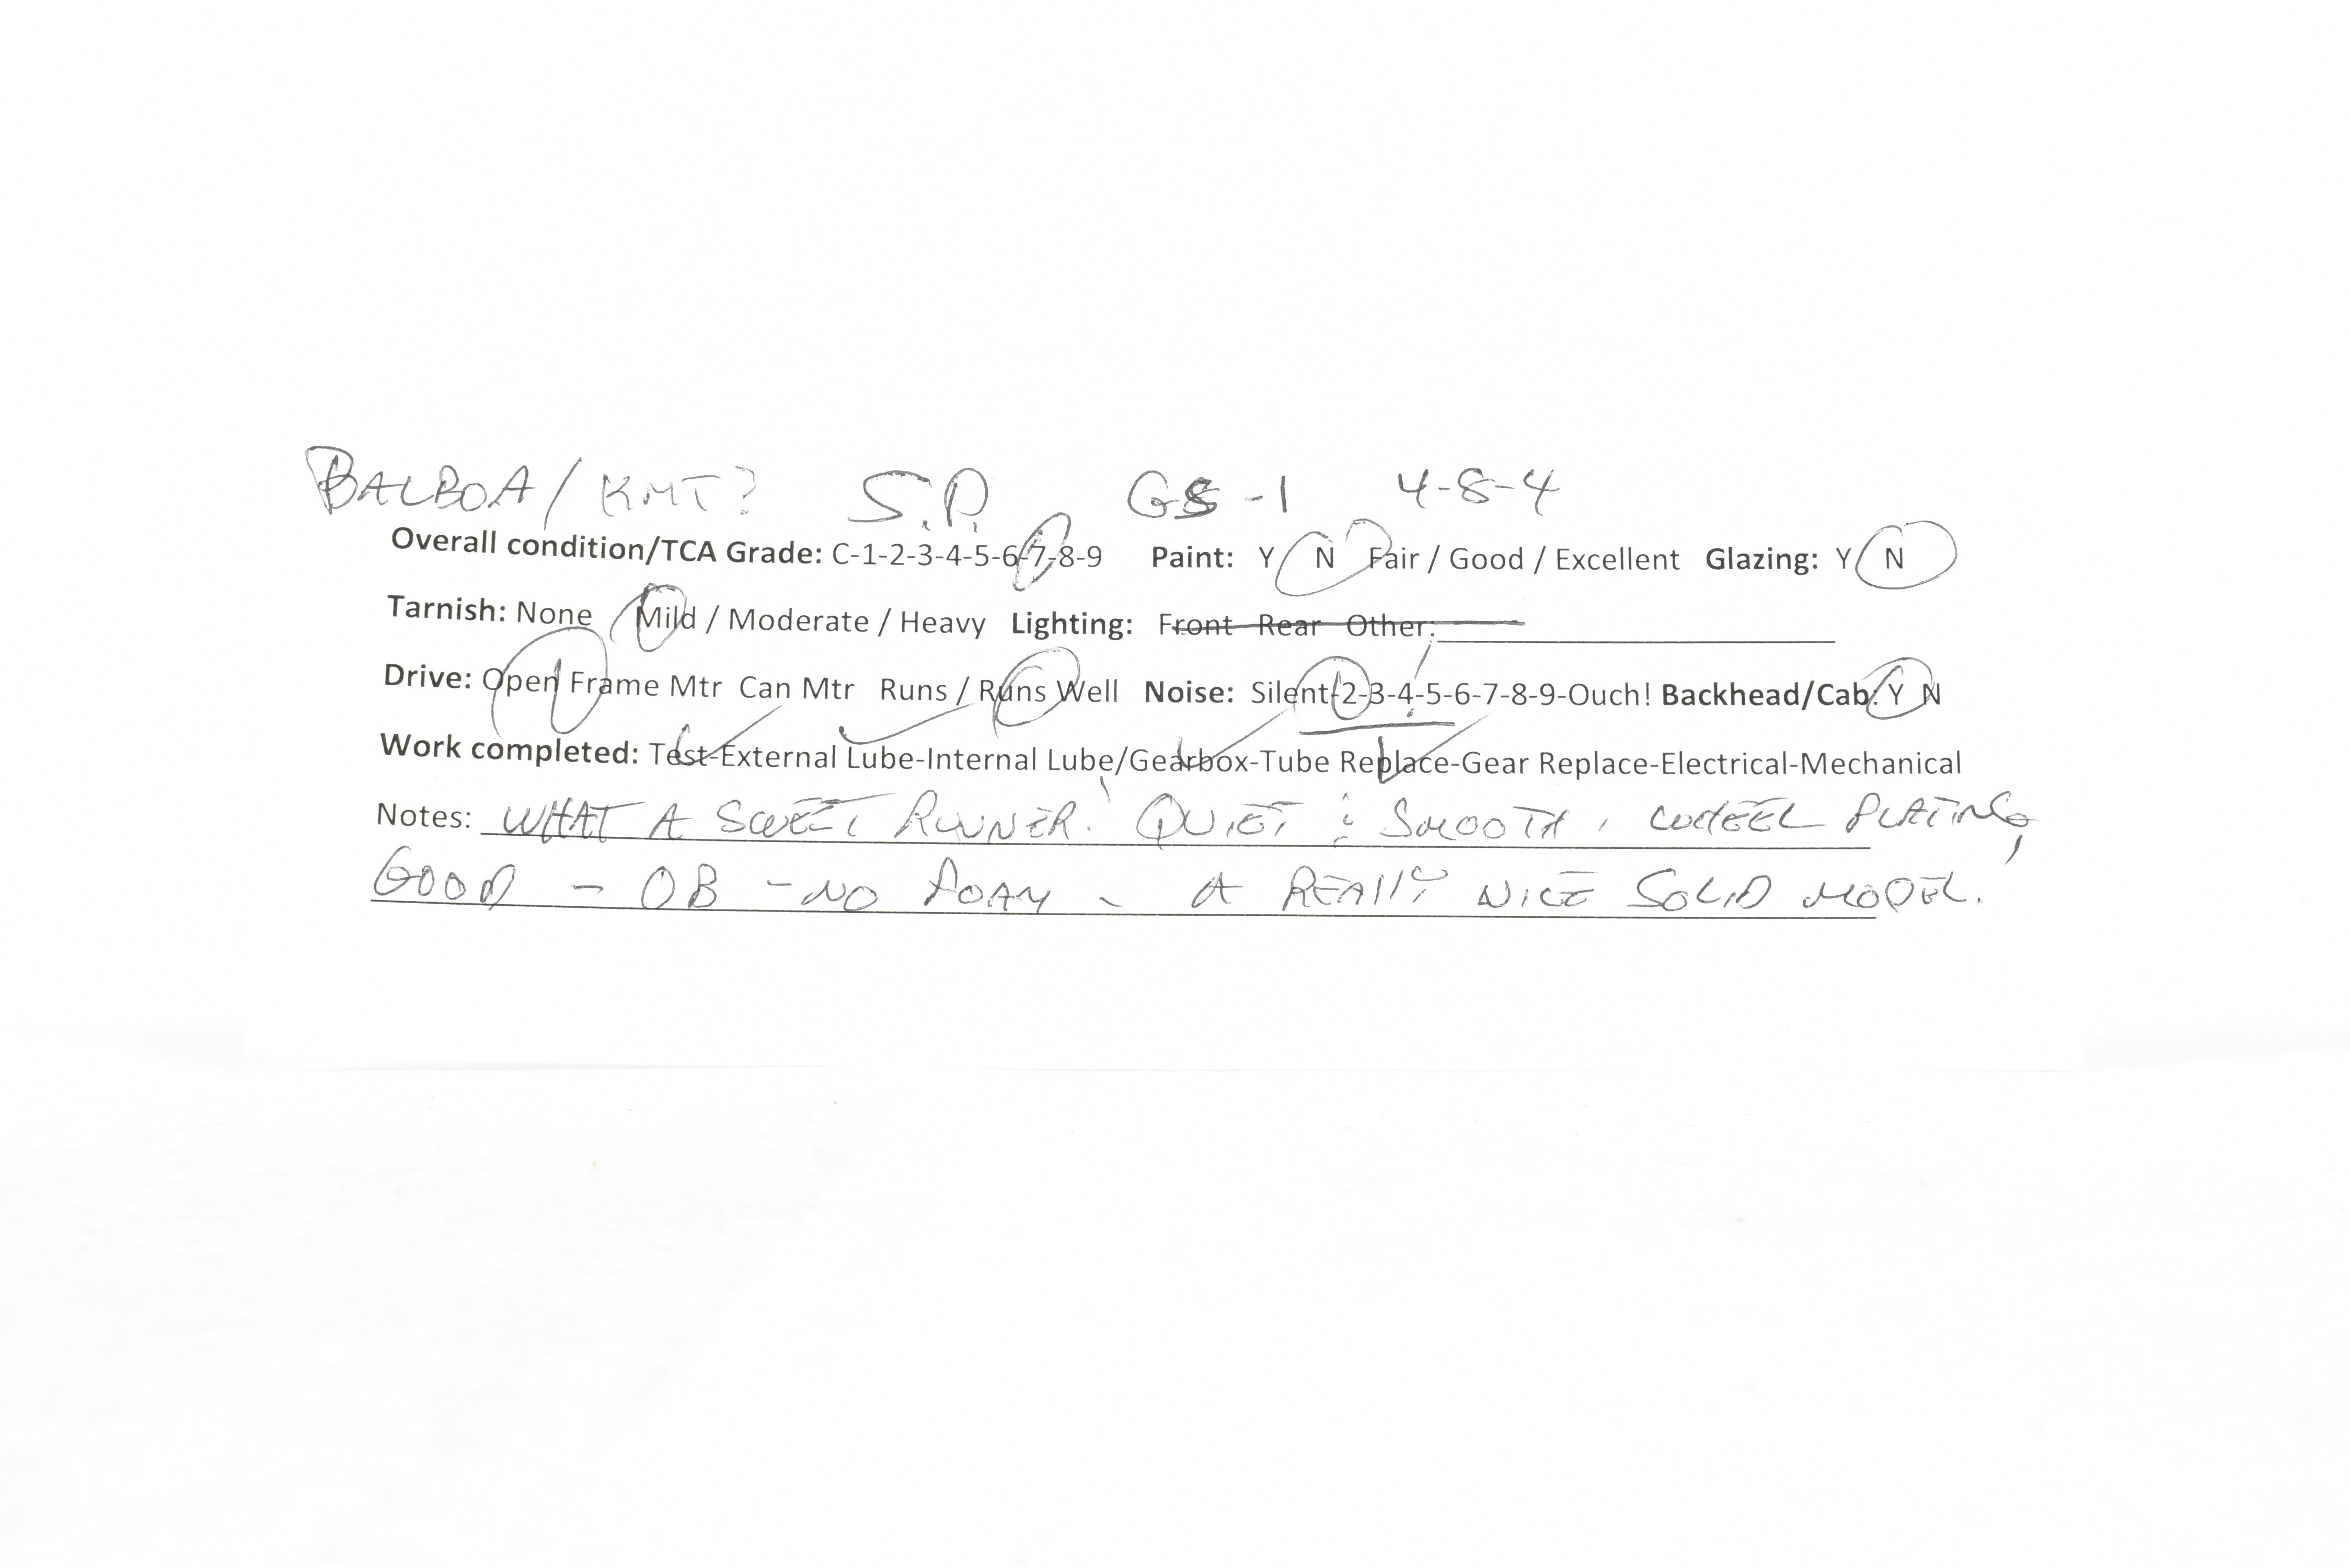 BALBOA / KMT? S.P. GS-1 4-8-4
Overall condition/TCA Grade: C-1-2-3-4-5-6-7-8-9 Paint: Y N Fair / Good / Excellent Glazing: Y N
Tarnish: None Mild / Moderate / Heavy Lighting: Front Rear Other:
Drive: Open Frame Mtr Can Mtr Runs / Runs Well Noise: Silent-2-3-4-5-6-7-8-9-Ouch! Backhead/Cab: Y N
Work completed: Test-External Lube-Internal Lube/Gearbox-Tube Replace-Gear Replace-Electrical-Mechanical
Notes: WHAT A SWEET RUNNER! QUIET & SMOOTH, WHEEL PLATING,
GOOD - OB - NO FOAM - A REAllY NICE SOLID MODEL.